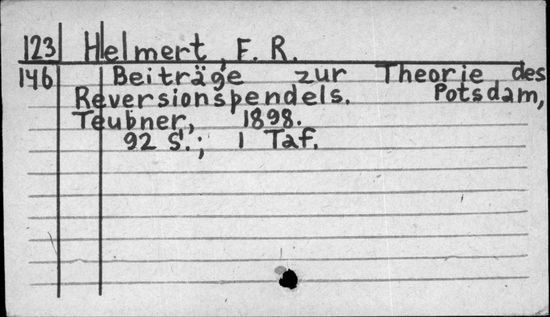 123 Helmert, F. R.
146 Beiträge zur Theorie des
Reversionspendels. Potsdam,
Teubner, 1898.
92 S.; 1 Taf.